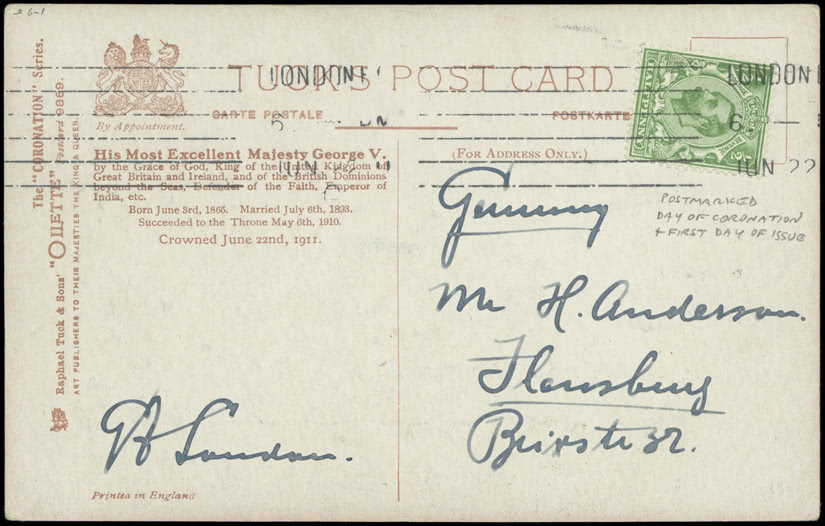 26-1
TUCK'S POST CARD
CARTE POSTALE
POSTKARTE
By Appointment.
His Most Excellent Majesty George V.
by the Grace of God, King of the United Kingdom of
Great Britain and Ireland, and of the British Dominions
beyond the Seas, Defender of the Faith, Emperor of
India, etc.
Born June 3rd, 1865. Married July 6th, 1893.
Succeeded to the Throne May 6th, 1910.
Crowned June 22nd, 1911.
(FOR ADDRESS ONLY.)
LONDON
6
JUN
LONDON
6
JUN 22
HALFPENNY
POSTMARKED
DAY OF CORONATION
+ FIRST DAY OF ISSUE
Germany
Mr H. Anderson.
Flensburg
GA London.
Printed in England
The "CORONATION" Series.
Raphael Tuck & Sons' "OILETTE" Postcard 9869.
ART PUBLISHERS TO THEIR MAJESTIES THE KING & QUEEN.